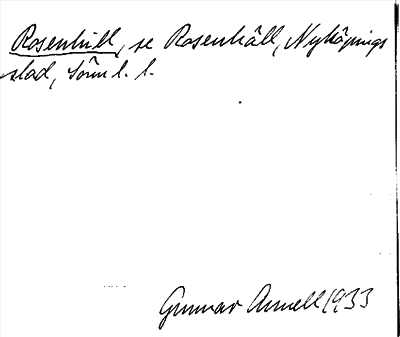 Rosenhill, se Rosenhäll, Nyköpings
stad, Sörm l. l.
Gunnar Annell 1933